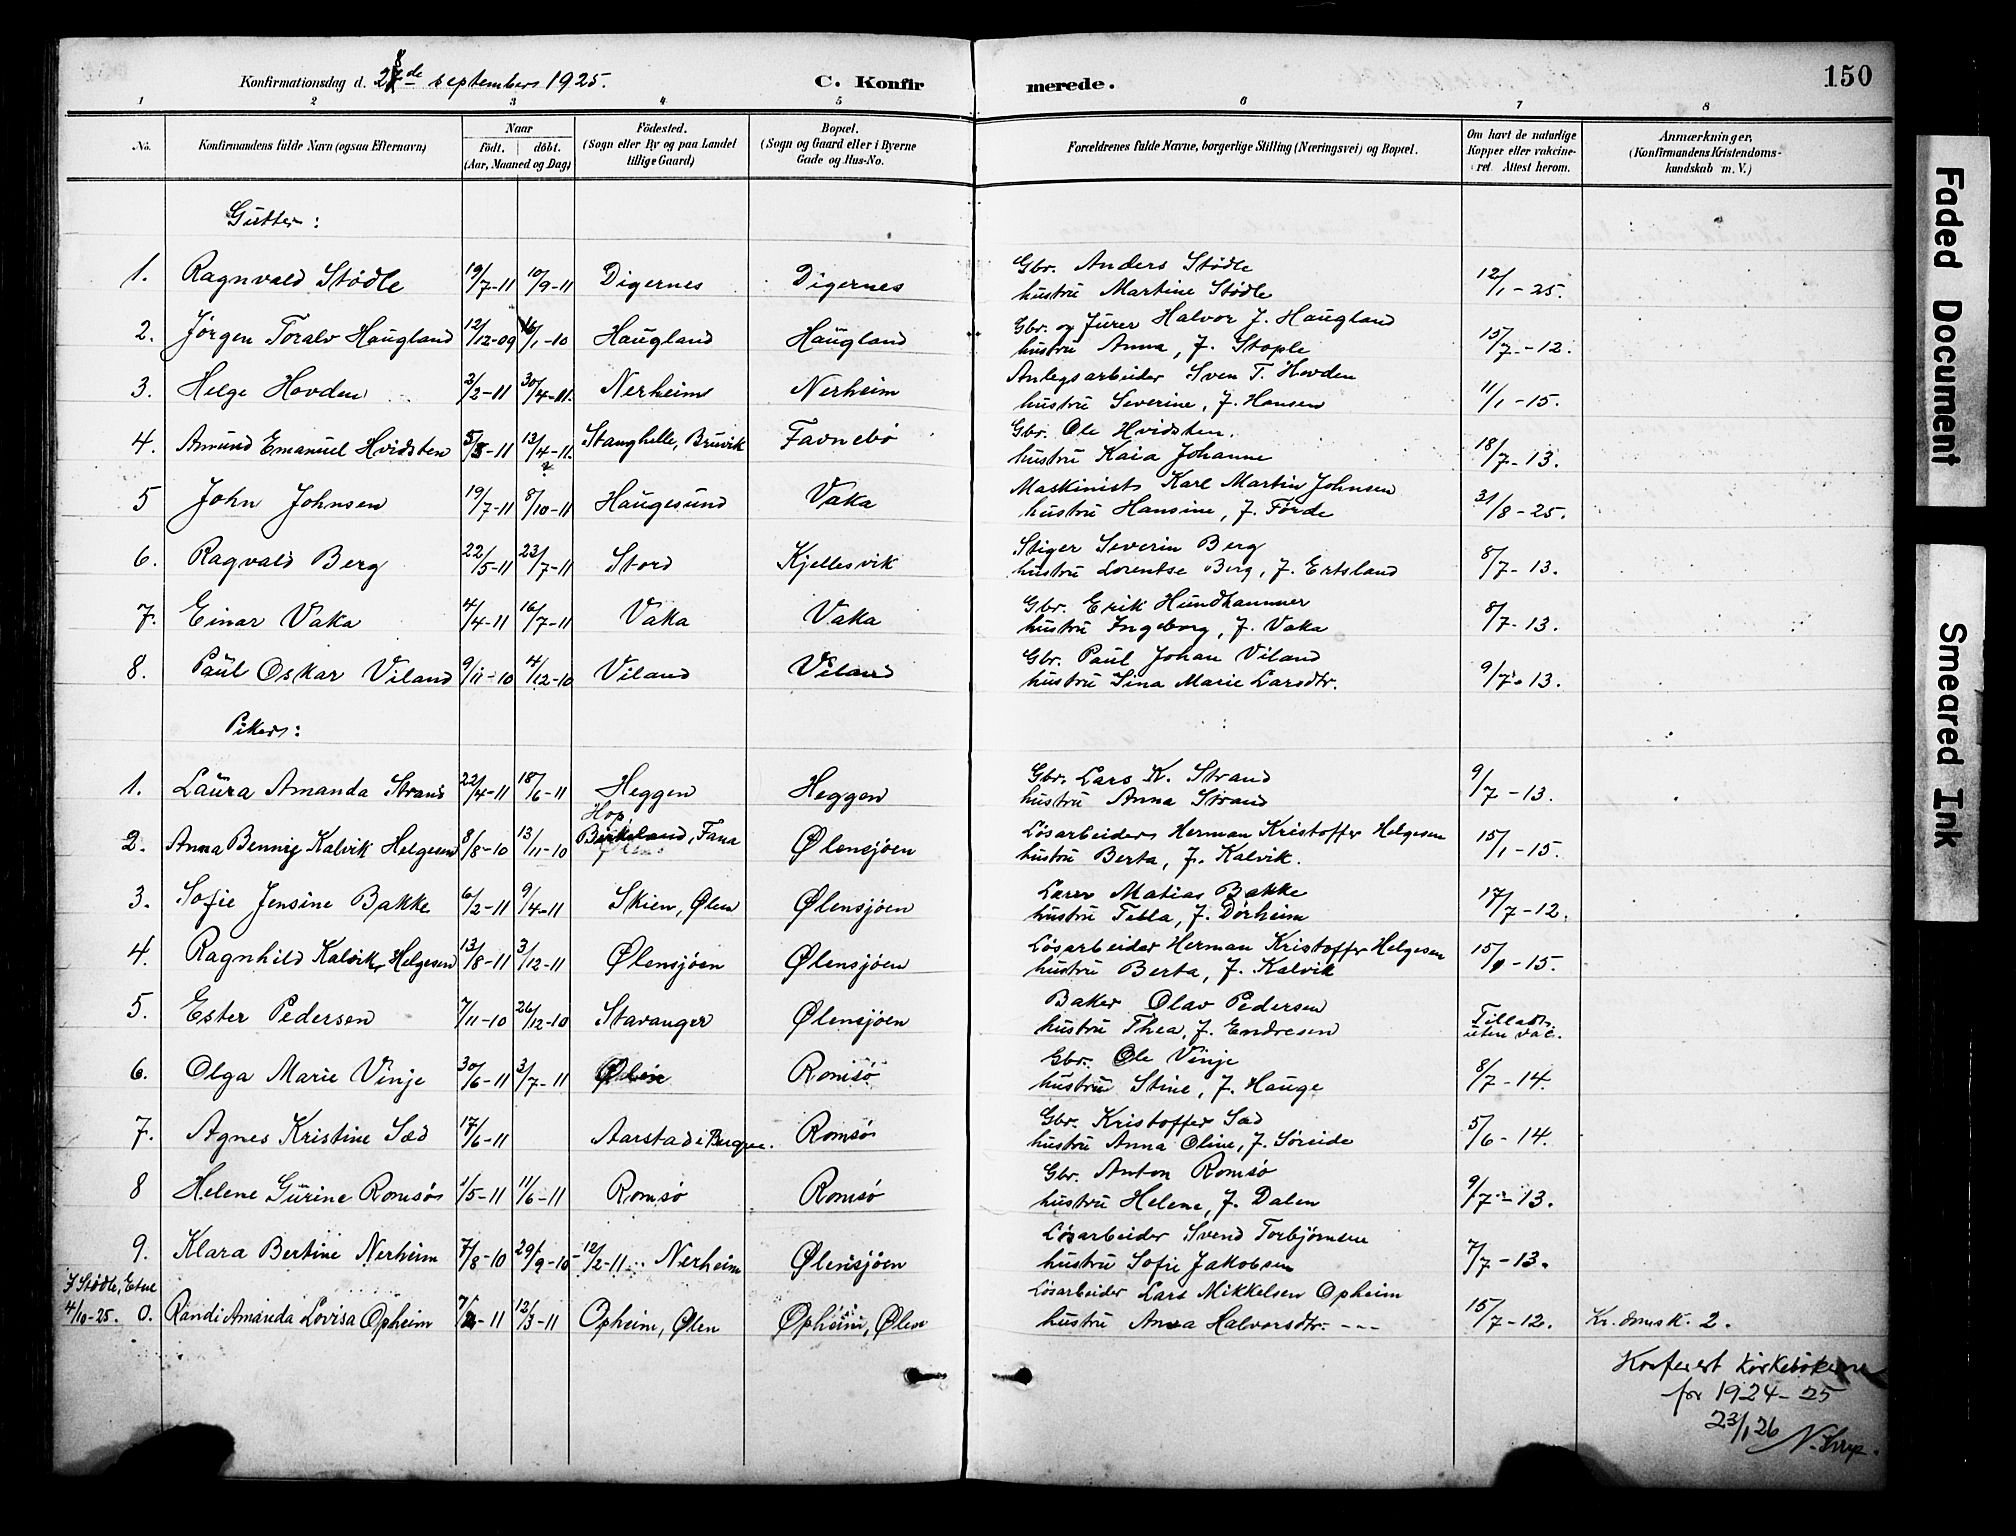 Konfirmationsdag d. 28de september 1925. C. Konfirmerede. 150
1 2 3 4 5 6 7 8
No. Konfirmandens fulde Navn (ogsaa Efternavn) Naar født, døbt. (Aar, Maaned og Dag) Fødested. (Sogn eller By og paa Landet tillige Gaard) Bopæl. (Sogn og Gaard eller i Byerne Gade og Hus-No. Forældrenes fulde Navne, borgerlige Stilling (Næringsvei) og Bopæl. Om havt de naturlige Kopper eller vakcineret Attest herom. Anmærkninger, (Konfirmandens Kristendomskundskab m. V.)
Gutter:
1. Ragnvald Stødle 19/7-11 10/9-11 Digernes Digernes Gbr. Anders Stødle 12/1-25.
hustru Martine Stødle
2. Jørgen Toralv Haugland 12/12-09 16/1-10 Haugland Haugland Gbr. og Jurer Halvor J. Haugland 15/7-12.
hustru Anna, f. Stople
3. Helge Hovden 3/2-11 30/4-11. Nerheim Nerheim Anlegsarbeider Sven T. Hovden 11/1-15.
hustru Severine, f. Hansen
4. Amund Emanuel Hvidsten 5/3-11 13/4-11. Stanghelle, Bruvik Favnebø Gbr. Ole Hvidsten. 18/7-13.
hustru Kaia Johanne
5 John Johnsen 19/7-11 8/10-11 Haugesund Vaka Maskinist Karl Martin Johnsen 31/8-25.
hustru Hansine, f. Førde
6. Ragvald Berg 22/5-11 23/7-11 Stord Kjellesvik Stiger Severin Berg 8/7-13.
hustru Lorentse Berg, f. Ertsland
7. Einar Vaka 4/4-11 16/7-11 Vaka Vaka Gbr. Erik Hundhammer 8/7-13.
hustru Ingeborg, f. Vaka
8. Paul Oskar Viland 9/11-10 4/12-10 Viland Viland Gbr. Paul Johan Viland 9/7-13.
hustru Sina Marie Larsdtr.
Piker:
1. Laura Amanda Strand 22/4-11 18/6-11 Heggen Heggen Gbr. Lars K. Strand 9/7-13.
hustru Anna Strand
2. Anna Benny Kalvik Helgesen 8/8-10 13/11-10 Hop, Birkeland, Fana Ølensjøen Løsarbeider Herman Kristoffer Helgesen 15/1-15.
hustru Berta, f. Kalvik.
3. Sofie Jensine Bakke 6/2-11 9/4-11 Skien, Ølen Ølensjøen Lærer Matias Bakke 17/7-12.
hustru Tilla, f. Dørheim
4. Ragnhild Kalvik Helgesen 13/8-11 3/12-11 Ølensjøen Ølensjøen Løsarbeider Herman Kristoffer Helgesen 15/1-15.
hustru Berta, f. Kalvik
5. Ester Pedersen 7/11-10 26/12-10 Stavanger Ølensjøen Baker Olav Pedersen Tilladt
hustru Thea, f. Endresen uten vac.
6. Olga Marie Vinje 30/6-11 3/7-11 Ølen Romsø Gbr. Ole Vinje 8/7-14.
hustru Stine, f. Hauge
7. Agnes Kristine Sæd 17/6-11 Aarstad i Bergen. Romsø Gbr. Kristoffer Sæd 5/6-14.
hustru Anna Oline, f. Søreide
8 Helene Gurine Romsø 1/5-11 11/6-11 Romsø Romsø Gbr. Anton Romsø 9/7-13.
hustru Helene, f. Dalen
9. Klara Bertine Nerheim 7/8-10 29/9-10 - 12/2-11 Nerheim Ølensjøen Løsarbeider Svend Torbjørnsen 7/7-13.
hustru Sofie Jakobsen
I Stødle, Etne
4/10-25. 0. Randi Amanda Lovisa Opheim 7/2-11 12/3-11 Opheim, Ølen Opheim, Ølen Løsarbeider Lars Mikkelsen Opheim 15/7-12. Kr.domsk. 2.
hustru Anna Halvorsdtr. ---
Konferert kirkebøkerne
for 1924-25
23/1 26
Faded Document
Smeared Ink